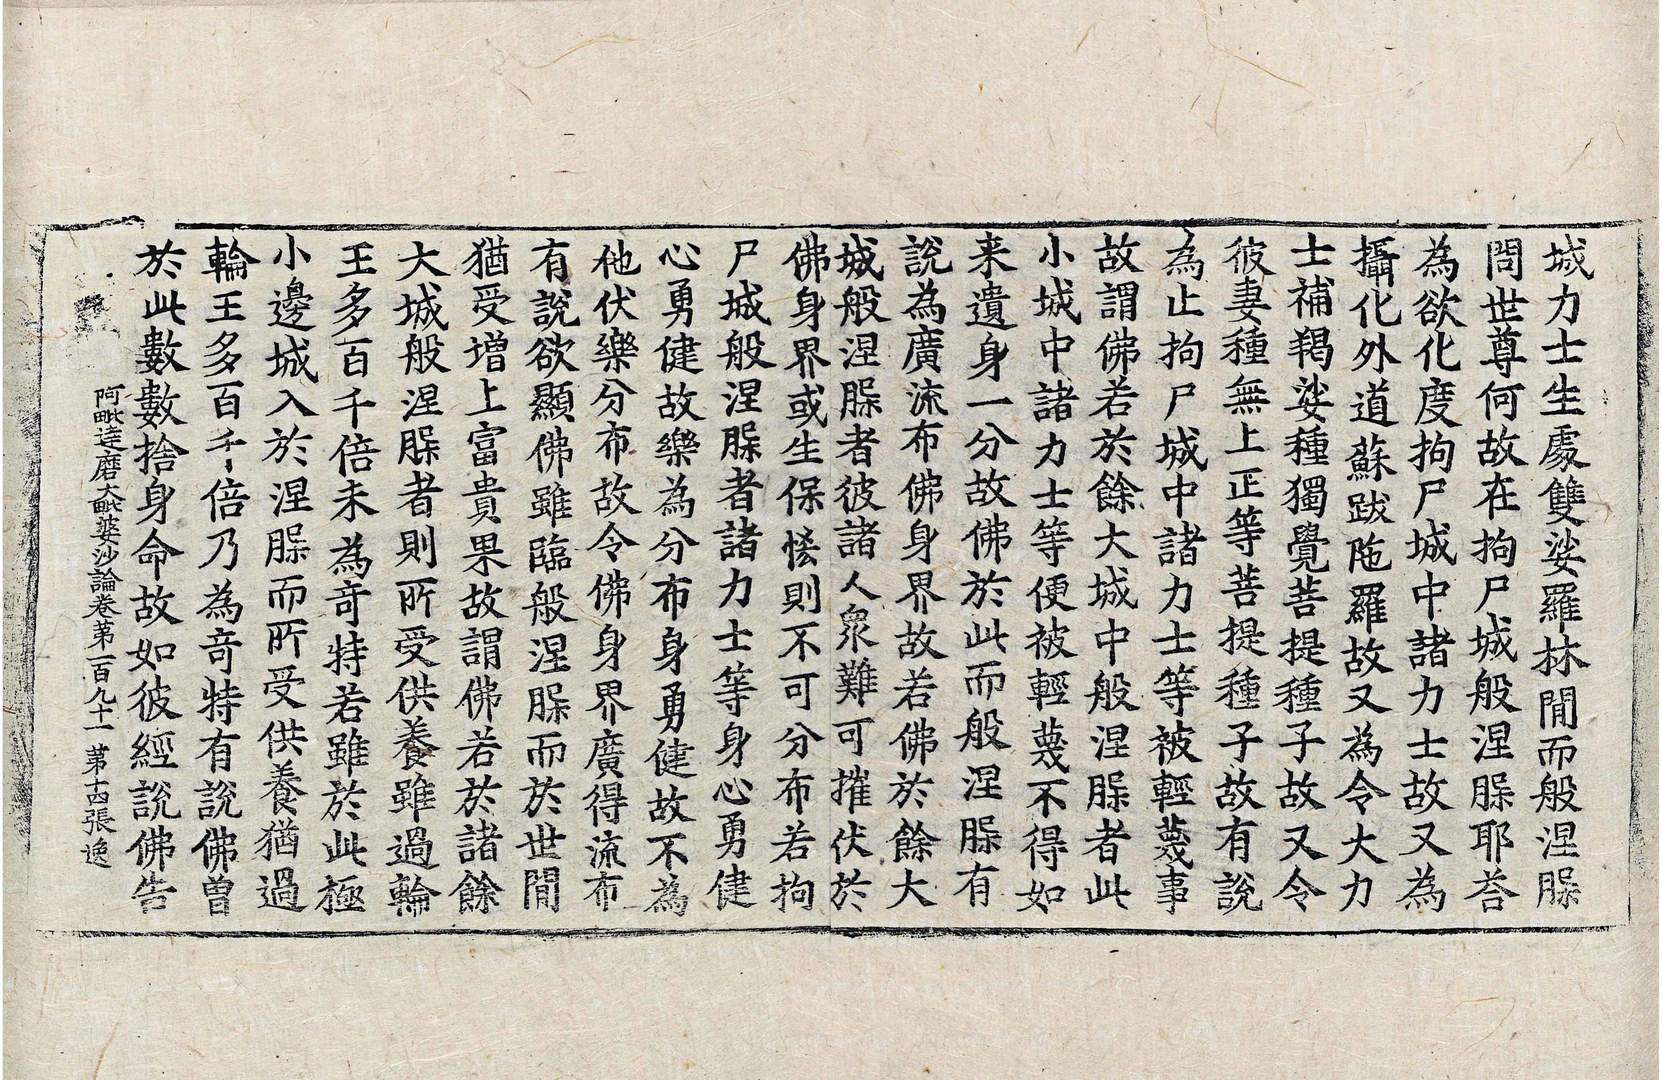 城力士生處雙娑羅林間而般涅腺
問世尊何故在拘尸城般涅腺耶荅
為欲化度拘尸城中諸力士故又為
攝化外道蘇跋陁羅故又為令大力
士補羯娑種獨覺菩提種子故又令
彼妻種無上正等菩提種子故有說
為止拘尸城中諸力士等被輕蔑事
故謂佛若於餘大城中般涅腺者此
小城中諸力士等便被輕蔑不得如
来遺身一分故佛於此而般涅腺有
說為廣流布佛身界故若佛於餘大
城般涅腺者彼諸人衆難可摧伏於
佛身界或生保悋則不可分布若拘
尸城般涅腺者諸力士等身心勇健
心勇健故樂為分布身勇健故不為
他伏樂分布故令佛身界廣得流布
有說欲顯佛雖臨般涅腺而於世間
猶受增上富貴果故謂佛若於諸餘
大城般涅腺者則所受供養雖過輪
王多百千倍未為竒特若雖於此極
小邊城入於涅腺而所受供養猶過
輪王多百千倍乃為竒特有說佛曾
於此數數捨身命故如彼經說佛告
阿毗達磨大毗婆沙論卷第一百九十一 第十四張 逸